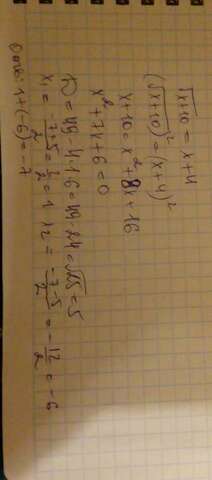 √x+10 = x+4
(√x+10)² = (x+4)²
x+10 = x²+8x+16
x²+7x+6=0
D = 49-4·1·6=49-24=√25=5
x₁ = -7+5/2 = 2/2 = 1 x₂ = -7-5/2 = -12/2 = -6
Ответ: 1+(-6)=-7